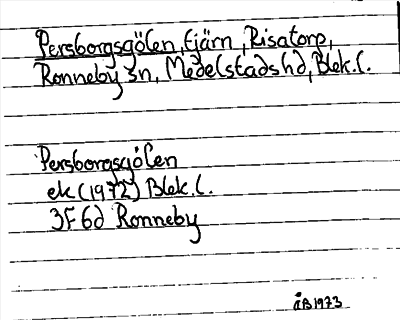 Persborgsgölen, tjärn, Risatorp,
Ronneby sn, Medelstads hd, Blek.l.
Persborgsgölen
ek (1972) Blek.l.
3F 6d Ronneby
ÅB 1973